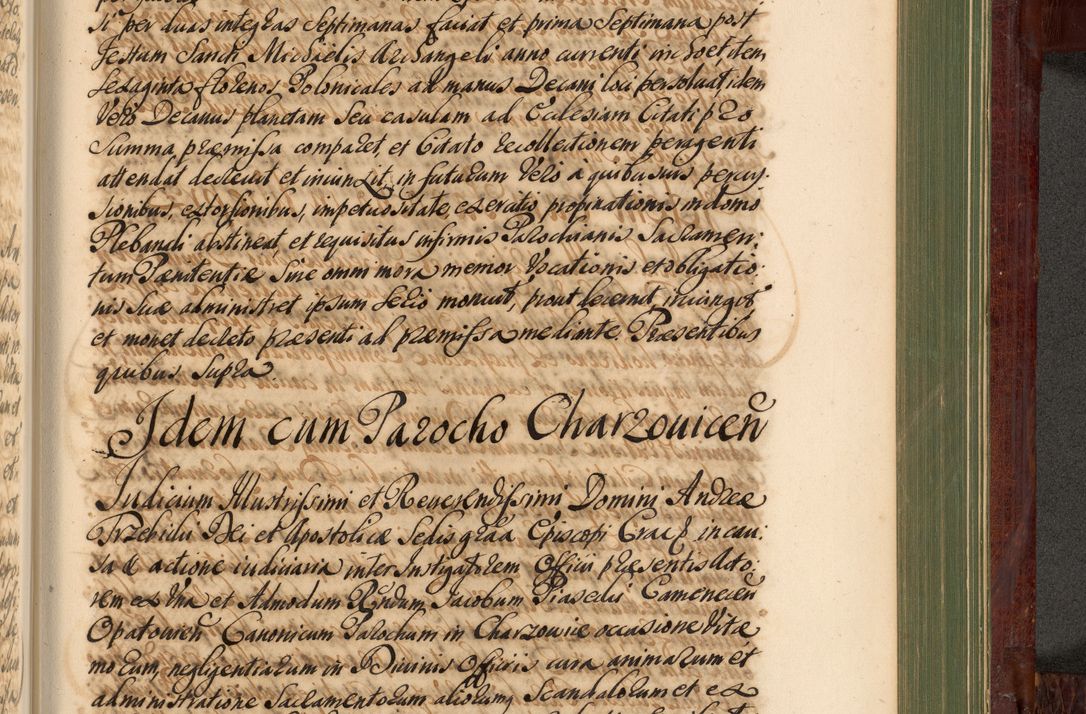 si per duas integras septimanas faciat et prima Septimana post
Festum Sancti Michaelis Archangeli anno currenti incohet, item
sexaginta florenos Polonicales ad manus Decani loci persoluat, idem
Vero Decanus planetam seu casulam ad Ecclesiam Citati pro
summa præmissa comparet, et Citato recollectionem peragenti
attendat decreuit et iniunxit, in futurum Vero à quibusuis percus-
sionibus, extorsionibus, impetuositate, exercitio propinationis in domo
Plebanali abstineat, et requisitus infirmis Parochianis Sacramen:
tum Pænitentiæ sine omni mora memor Vocationis et obligatio:
nis suæ administret ipsum serio monuit, prout decernit, iniungit
et monet decreto præsenti ad præmissa mediante. Præsentibus
quibus supra.
Idem cum Parocho Charzouiceñ
Iudicium Illustrissimi et Reuerendissimi Domini Andreæ
Trzebicki Dei et Apostolicæ Sedis graã Episcopi Crac̃ in cau:
sa & actione iudiciaria inter Instigatorem Officii præsentis Acto:
rem ex Vna et Admodum Rñdum Jacobum Piasecki Cameneceñ
Opatouieñ Canonicum Parochum in Charzouice occasione Vitæ
morum, negligentiarum in Diuinis Officiis cura animarum et
administratione Sacramentorum aliorumq̃ Scandalorum et ex